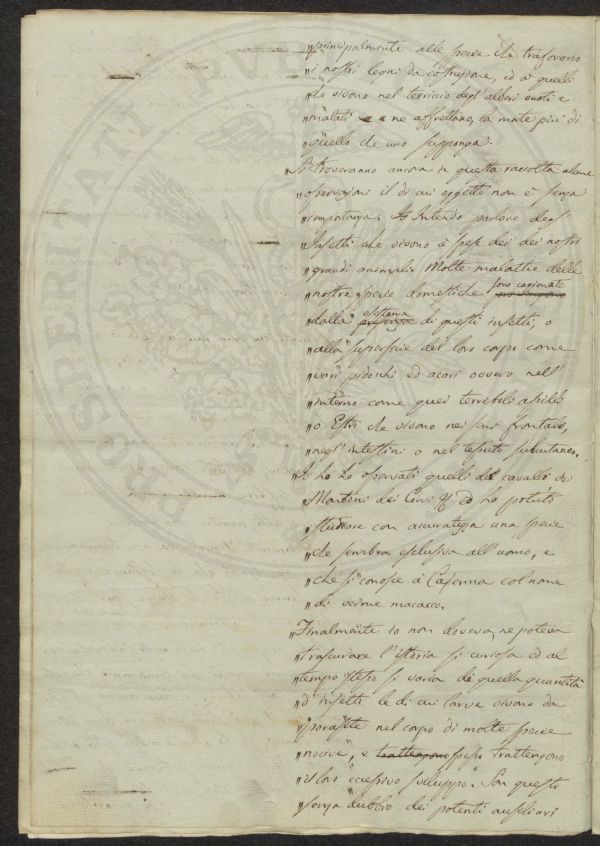 „principalmente alle specie che traforano
„i nostri legni da costruzione, ed a quelle
„che vivono nel terriccio degl'alberi vuoti e
„malati e ne affrettano, la morte piu di
„quello che uno supponga.
„Si troveranno ancora in questa raccolta alcune
„osservazioni il di cui oggetto non è senza
„importanza. Intendo parlare degl'
„Insetti che vivono a spese dei dei nostri
„grandi animali. Molte malattie delle
„nostre specie domestiche sono cagionate
„dalla esistenza di questi insetti, o
„alla superficie del loro corpo come
„varj pidocchi ed acari ovvero nell'
„interno come quei terribili assilli
„o Estri che vivono nei seni frontali,
„negl'intestini o nel tessuto subcutaneo.
„Io ho osservati quelli del cavallo dei
„Montoni dei Cervi & ed ho potuto
„studiare con accuratezza una specie
„che sembra esclusiva all'uomo, e
„che si conosce a Cajenna col nome
„di verme macacco.
„Finalmente io non doveva, ne poteva
„trascurare l'istoria si curiosa ed al
„tempo stesso si varia di quella quantità
„d'insetti le di cui larve vivono da
„parasite nel corpo di molte specie
„nocive, e trattengono spesso trattengono
„il loro eccessivo sviluppo. Son questi
„senza dubbio dei potenti ausiliari
PROSPERITATI PUBL